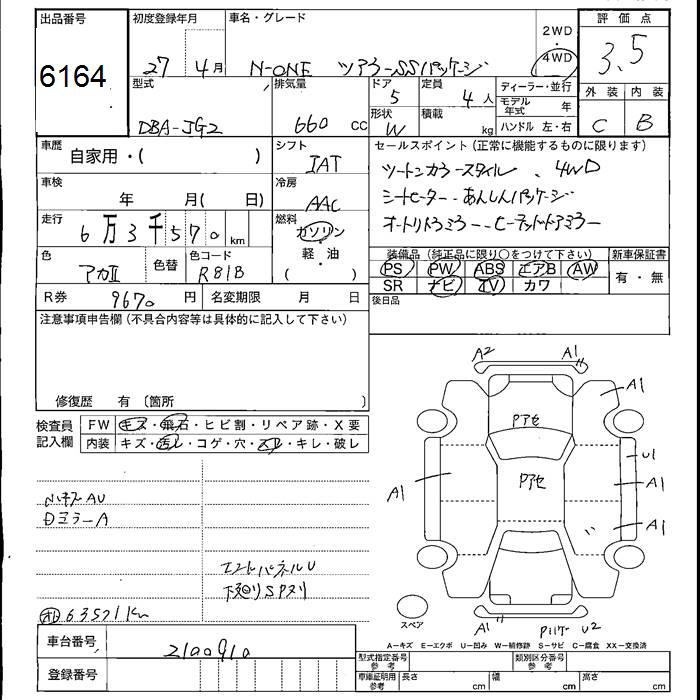 出品番号
6164
初度登録年月
27年 4月
車名・グレード
N-ONE ツアラーSSパッケージ
2WD
・
4WD
評価点
3.5
外装 内装
C B
型式
DBA-JG2
排気量
660 cc
ドア
5
形状
W
定員
4人
積載
kg
ディーラー・並行
モデル年式 年
ハンドル 左・右
車歴
自家用・( )
シフト
IAT
車検
年 月( 日)
冷房
AAC
走行
6万3千570km
燃料
ガソリン
・
軽・油
( )
色
アカII
色替
色コード
R81B
R券 9670円
名変期限 月 日
セールスポイント(正常に機能するものに限ります)
ツートンカラースタイル、4WD
シートヒーター、あんしんパッケージ
オートリトラミラー、ヒーテッドドアミラー
装備品(純正品に限り〇をつけて下さい)
新車保証書
PS PW ABS エアB AW
SR ナビ TV カワ
有・無
後日品
注意事項申告欄(不具合内容等は具体的に記入して下さい)
修復歴 有〔箇所 〕
検査員
記入欄
FW キズ・飛石・ヒビ割・リペア跡・X要
内装 キズ・汚レ・コゲ・穴・スレ・キレ・破レ
ハンドルAU
Dミラー A
エンドパネルU
下廻りSPヌリ
63571Km
A2 A1
A1
Pアセ
U1
A1 Pアセ A1
A1
スペア
A1 U2
A-キズ E-エクボ U-凹み W-補修跡 S-サビ C-腐食 XX-交換済
車台番号
2100910
登録番号
型式指定番号
参考
類別区分番号
参考
車庫証明用
参考
長さ cm 幅 cm 高さ cm